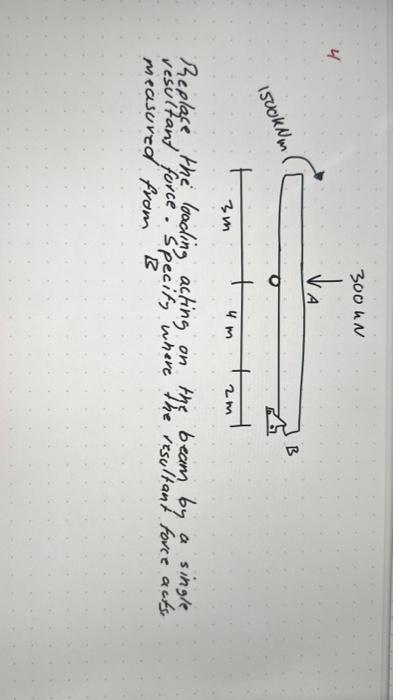 4
300 kN
A
1500kNm
B
3m
4 m
2m
Replace the loading acting on the beam by a single
resultant force. Specify where the resultant force acts
measured from B